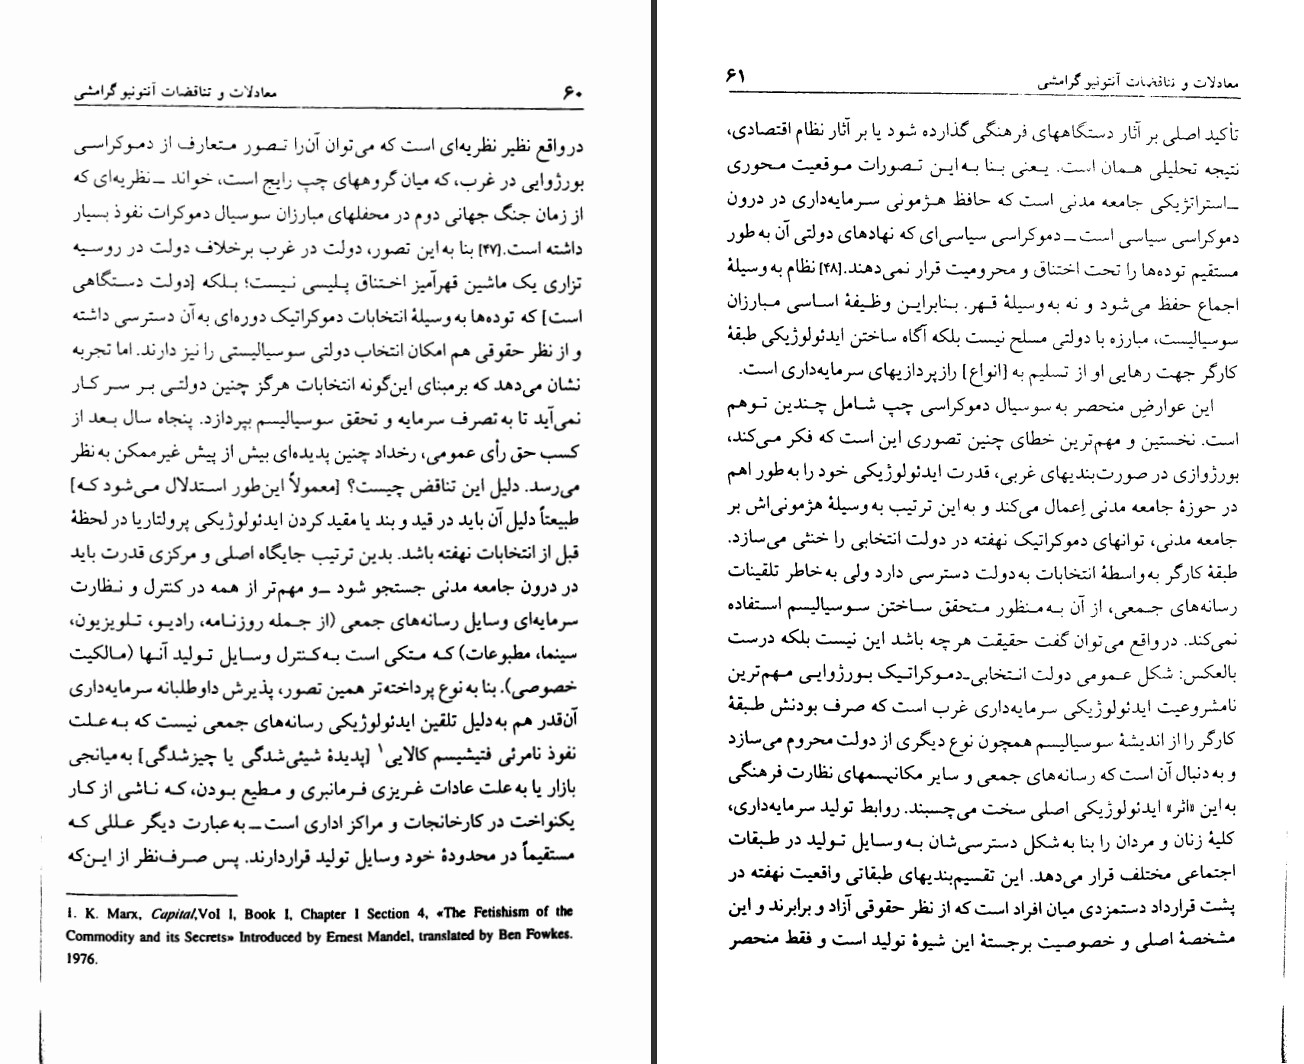 ۶۰ معادلات و تناقضات آنتونیو گرامشی
در واقع نظیر نظریه‌ای است که می‌توان آن‌را تصور متعارف از دموکراسی
بورژوایی در غرب، که میان گروههای چپ رایج است، خواند ـ نظریه‌ای که
از زمان جنگ جهانی دوم در محفلهای مبارزان سوسیال دموکرات نفوذ بسیار
داشته است.[۴۷] بنا به این تصور، دولت در غرب برخلاف دولت در روسیه
تزاری یک ماشین قهرآمیز اختناق پلیسی نیست؛ بلکه [دولت دستگاهی
است] که توده‌ها به وسیلهٔ انتخابات دموکراتیک دوره‌ای به آن دسترسی داشته
و از نظر حقوقی هم امکان انتخاب دولتی سوسیالیستی را نیز دارند. اما تجربه
نشان می‌دهد که برمبنای این‌گونه انتخابات هرگز چنین دولتی بر سر کار
نمی‌آید تا به تصرف سرمایه و تحقق سوسیالیسم بپردازد. پنجاه سال بعد از
کسب حق رأی عمومی، رخداد چنین پدیده‌ای بیش از پیش غیرممکن به نظر
می‌رسد. دلیل این تناقض چیست؟ [معمولاً این‌طور استدلال می‌شود که]
طبیعتاً دلیل آن باید در قید و بند یا مقید کردن ایدئولوژیکی پرولتاریا در لحظهٔ
قبل از انتخابات نهفته باشد. بدین ترتیب جایگاه اصلی و مرکزی قدرت باید
در درون جامعه مدنی جستجو شود ـ و مهم‌تر از همه در کنترل و نظارت
سرمایه‌ای وسایل رسانه‌های جمعی (از جمله روزنامه، رادیو، تلویزیون،
سینما، مطبوعات) که متکی است به کنترل وسایل تولید آنها (مالکیت
خصوصی). بنا به نوع پرداخته‌تر همین تصور، پذیرش داوطلبانه سرمایه‌داری
آن‌قدر هم به دلیل تلقین ایدئولوژیکی رسانه‌های جمعی نیست که به علت
نفوذ نامرئی فتیشیسم کالایی۱ [پدیدهٔ شیئی‌شدگی یا چیزشدگی] به میانجی
بازار یا به علت عادات غریزی فرمانبری و مطیع بودن، که ناشی از کار
یکنواخت در کارخانجات و مراکز اداری است ـ به عبارت دیگر عللی که
مستقیماً در محدودهٔ خود وسایل تولید قرار دارند. پس صرف‌نظر از این‌که
1. K. Marx, Capital,Vol I, Book I, Chapter I Section 4, «The Fetishism of the
Commodity and its Secrets» Introduced by Ernest Mandel, translated by Ben Fowkes.
1976.
معادلات و تناقضات آنتونیو گرامشی ۶۱
تأکید اصلی بر آثار دستگاههای فرهنگی گذارده شود یا بر آثار نظام اقتصادی،
نتیجه تحلیلی همان است. یعنی بنا به این تصورات موقعیت محوری
ـ استراتژیکی جامعه مدنی است که حافظ هژمونی سرمایه‌داری در درون
دموکراسی سیاسی است ـ دموکراسی سیاسی‌ای که نهادهای دولتی آن به طور
مستقیم توده‌ها را تحت اختناق و محرومیت قرار نمی‌دهند.[۴۸] نظام به وسیلهٔ
اجماع حفظ می‌شود و نه به وسیلهٔ قهر. بنابراین وظیفهٔ اساسی مبارزان
سوسیالیست، مبارزه با دولتی مسلح نیست بلکه آگاه ساختن ایدئولوژیکی طبقهٔ
کارگر جهت رهایی او از تسلیم به [انواع] رازپردازیهای سرمایه‌داری است.
این عوارضِ منحصر به سوسیال دموکراسی چپ شامل چندین توهم
است. نخستین و مهم‌ترین خطای چنین تصوری این است که فکر می‌کند،
بورژوازی در صورت‌بندیهای غربی، قدرت ایدئولوژیکی خود را به طور اهم
در حوزهٔ جامعه مدنی اِعمال می‌کند و به این ترتیب به وسیلهٔ هژمونی‌اش بر
جامعه مدنی، توانهای دموکراتیک نهفته در دولت انتخابی را خنثی می‌سازد.
طبقهٔ کارگر به واسطهٔ انتخابات به دولت دسترسی دارد ولی به خاطر تلقینات
رسانه‌های جمعی، از آن به منظور متحقق ساختن سوسیالیسم استفاده
نمی‌کند. در واقع می‌توان گفت حقیقت هرچه باشد این نیست بلکه درست
بالعکس: شکل عمومی دولت انتخابی‌ـ‌دموکراتیک بورژوایی مهم‌ترین
نامشروعیت ایدئولوژیکی سرمایه‌داری غرب است که صرف بودنش طبقهٔ
کارگر را از اندیشهٔ سوسیالیسم همچون نوع دیگری از دولت محروم می‌سازد
و به دنبال آن است که رسانه‌های جمعی و سایر مکانیسمهای نظارت فرهنگی
به این «اثر» ایدئولوژیکی اصلی سخت می‌چسبند. روابط تولید سرمایه‌داری،
کلیهٔ زنان و مردان را بنا به شکل دسترسی‌شان به وسایل تولید در طبقات
اجتماعی مختلف قرار می‌دهد. این تقسیم‌بندیهای طبقاتی واقعیت نهفته در
پشت قرارداد دستمزدی میان افراد است که از نظر حقوقی آزاد و برابرند و این
مشخصهٔ اصلی و خصوصیت برجستهٔ این شیوهٔ تولید است و فقط منحصر